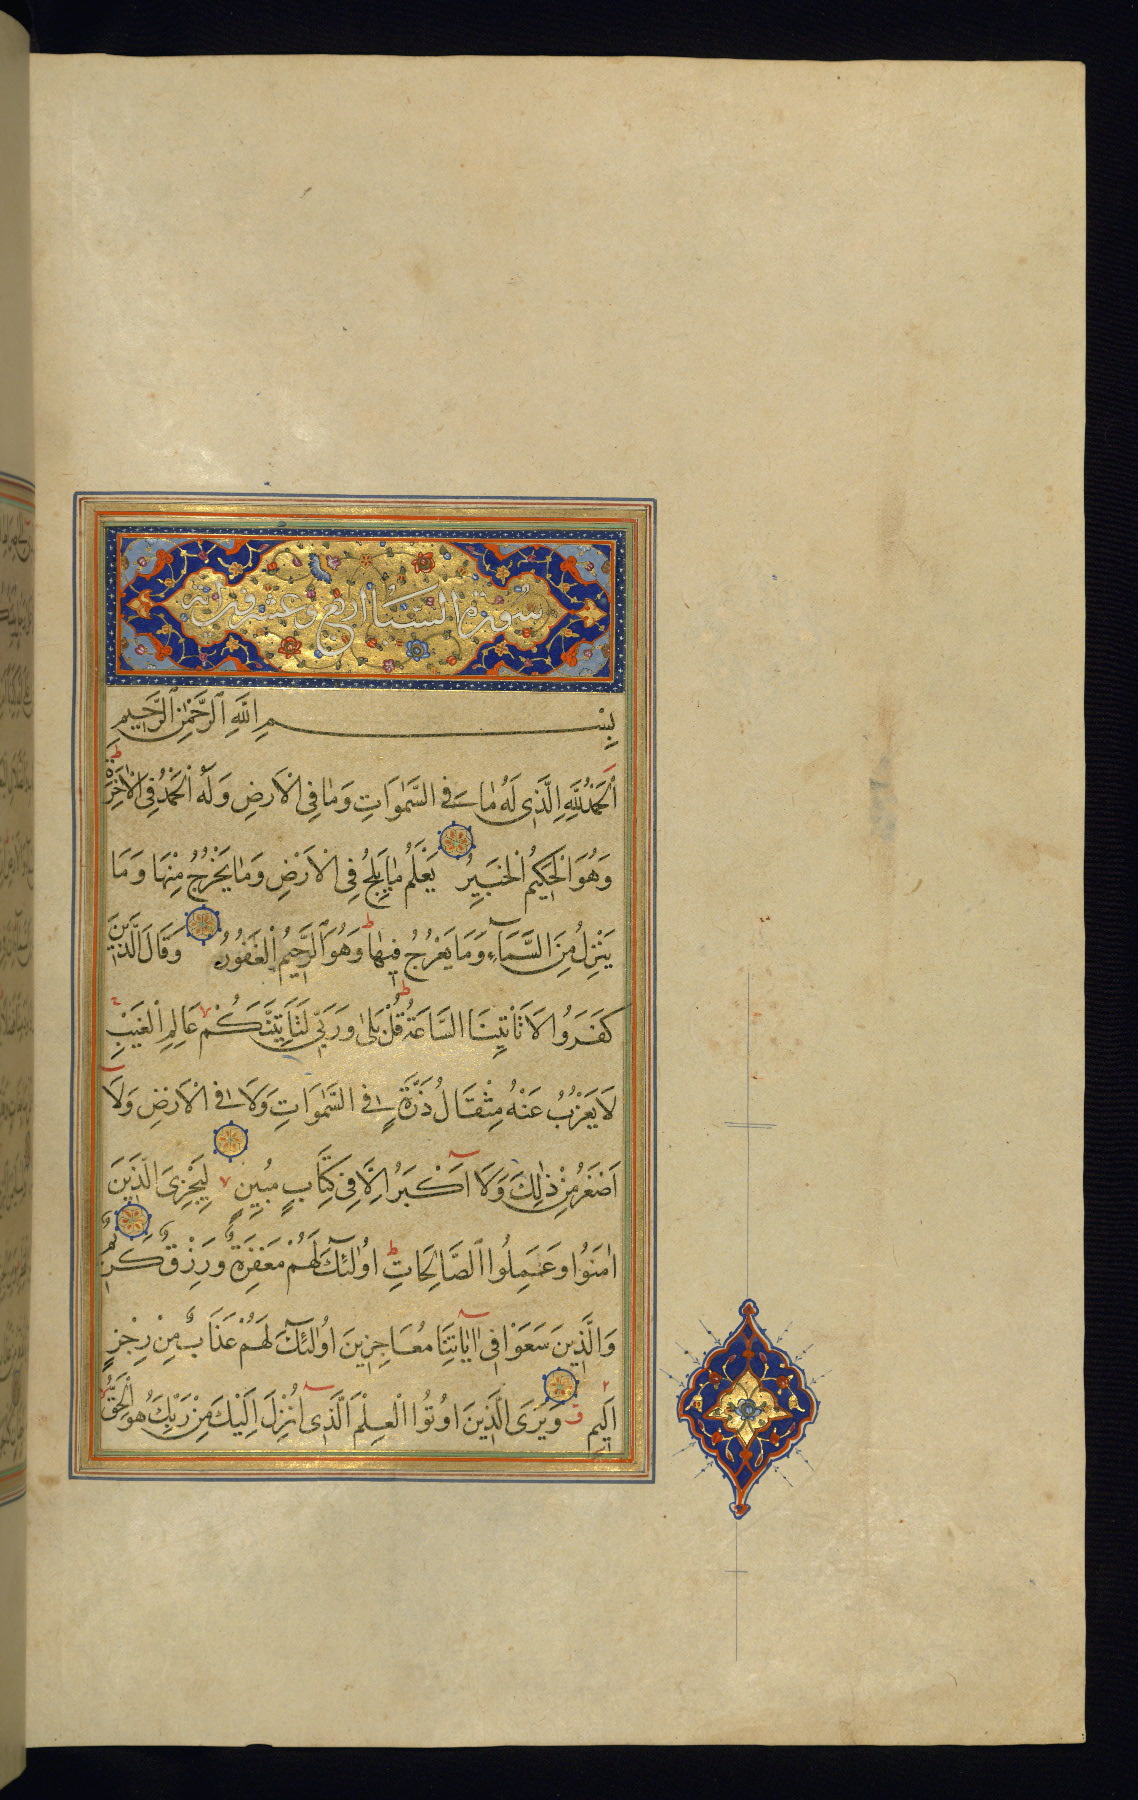 سورة السبأ اربع وعشرون اية
بِسْمِ اللَّهِ ٱلرَّحْمٰنِ ٱلرَّحِيمِ
اَلْحَمْدُ لِلَّهِ الَّذِى لَهُ مَا فِى السَّمٰوَاتِ وَمَا فِى الْاَرْضِ وَلَهُ الْحَمْدُ فِى الْاٰخِرَةِ
وَهُوَ الْحَكِيمُ الْخَبِيرُ يَعْلَمُ مَا يَلِجُ فِى الْاَرْضِ وَمَا يَخْرُجُ مِنْهَا وَمَا
يَنْزِلُ مِنَ السَّمَآءِ وَمَا يَعْرُجُ فِيهَا وَهُوَ الرَّحِيمُ الْغَفُورُ وَقَالَ الَّذِينَ
كَفَرُوا لَا تَاْتِينَا السَّاعَةُ قُلْ بَلٰى وَرَبِّى لَتَاْتِيَنَّكُمْ عَالِمِ الْغَيْبِ
لَا يَعْزُبُ عَنْهُ مِثْقَالُ ذَرَّةٍ فِى السَّمٰوَاتِ وَلَا فِى الْاَرْضِ وَلَآ
اَصْغَرُ مِنْ ذٰلِكَ وَلَآ اَكْبَرُ اِلَّا فِى كِتَابٍ مُبِينٍ لِيَجْزِىَ الَّذِينَ
اٰمَنُوا وَعَمِلُوا الصَّالِحَاتِ اُولٰٓئِكَ لَهُمْ مَغْفِرَةٌ وَرِزْقٌ كَرِيمٌ
وَالَّذِينَ سَعَوْا فِىٓ اٰيَاتِنَا مُعَاجِزِينَ اُولٰٓئِكَ لَهُمْ عَذَابٌ مِنْ رِجْزٍ
اَلِيمٍ وَيَرَى الَّذِينَ اُوتُوا الْعِلْمَ الَّذِىٓ اُنْزِلَ اِلَيْكَ مِنْ رَبِّكَ هُوَ الْحَقَّ